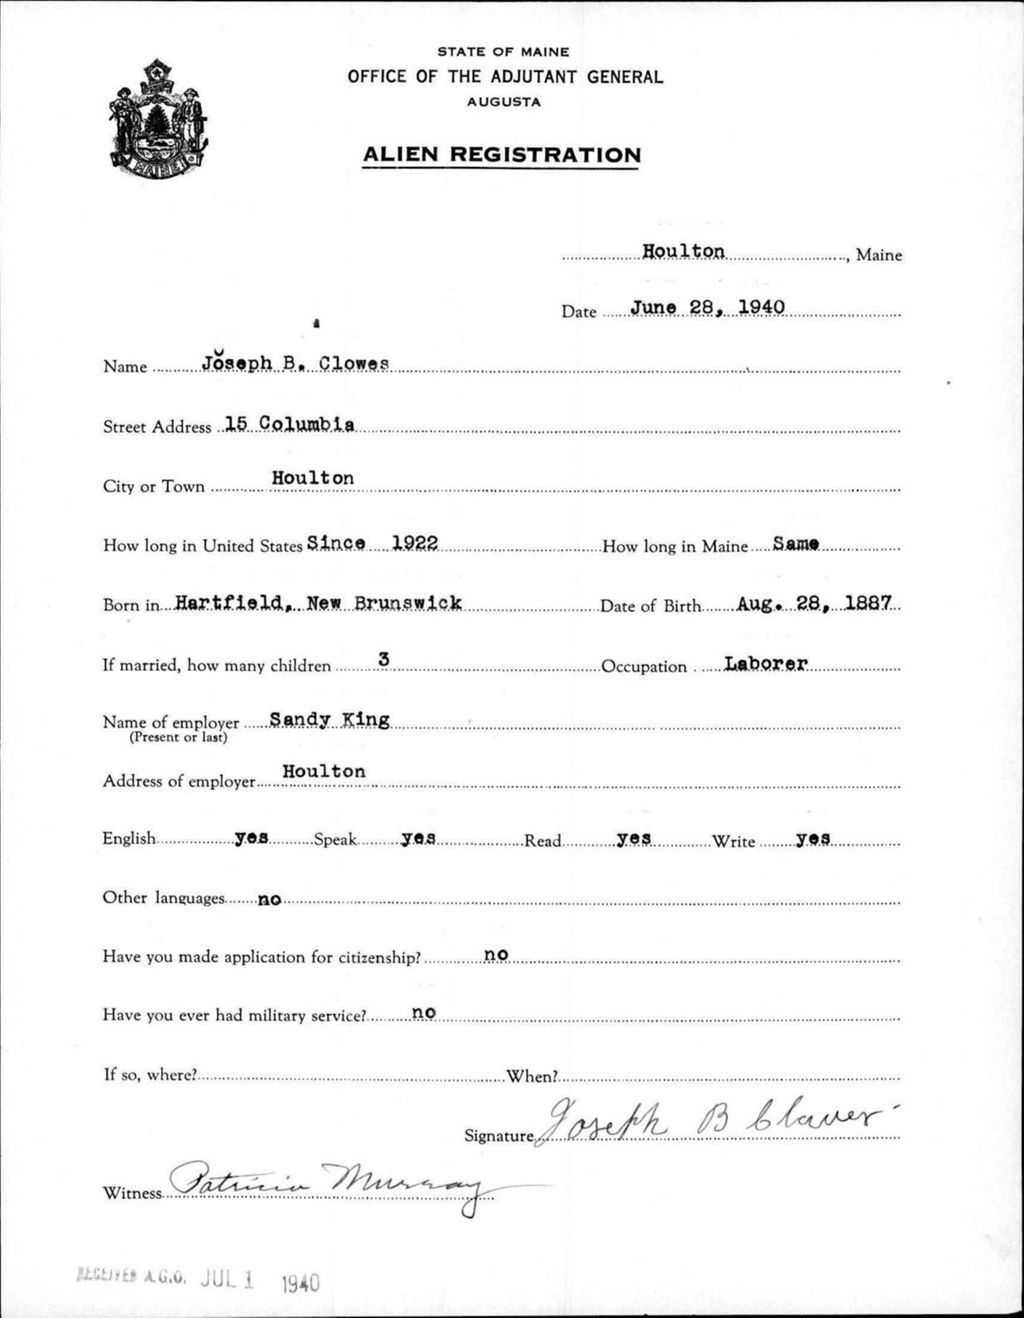 STATE OF MAINE
OFFICE OF THE ADJUTANT GENERAL
AUGUSTA
ALIEN REGISTRATION
MAINE
Houlton, Maine
Date June 28, 1940
Name Joseph B. Clowes
Street Address 15 Columbia
City or Town Houlton
How long in United States Since 1922 How long in Maine Same
Born in Hartfield, New Brunswick Date of Birth Aug. 28, 1887
If married, how many children 3 Occupation Laborer
Name of employer Sandy King
(Present or last)
Address of employer Houlton
English yes Speak yes Read yes Write yes
Other languages no
Have you made application for citizenship? no
Have you ever had military service? no
If so, where? When?
Signature Joseph B
Witness Patricia Murray
RECEIVED A.G.O. JUL 1 1940